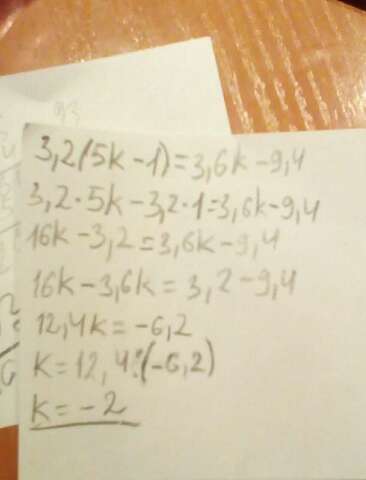 3,2(5k-1)=3,6k-9,4
3,2·5k-3,2·1=3,6k-9,4
16k-3,2=3,6k-9,4
16k-3,6k=3,2-9,4
12,4k=-6,2
k=12,4:(-6,2)
k=-2